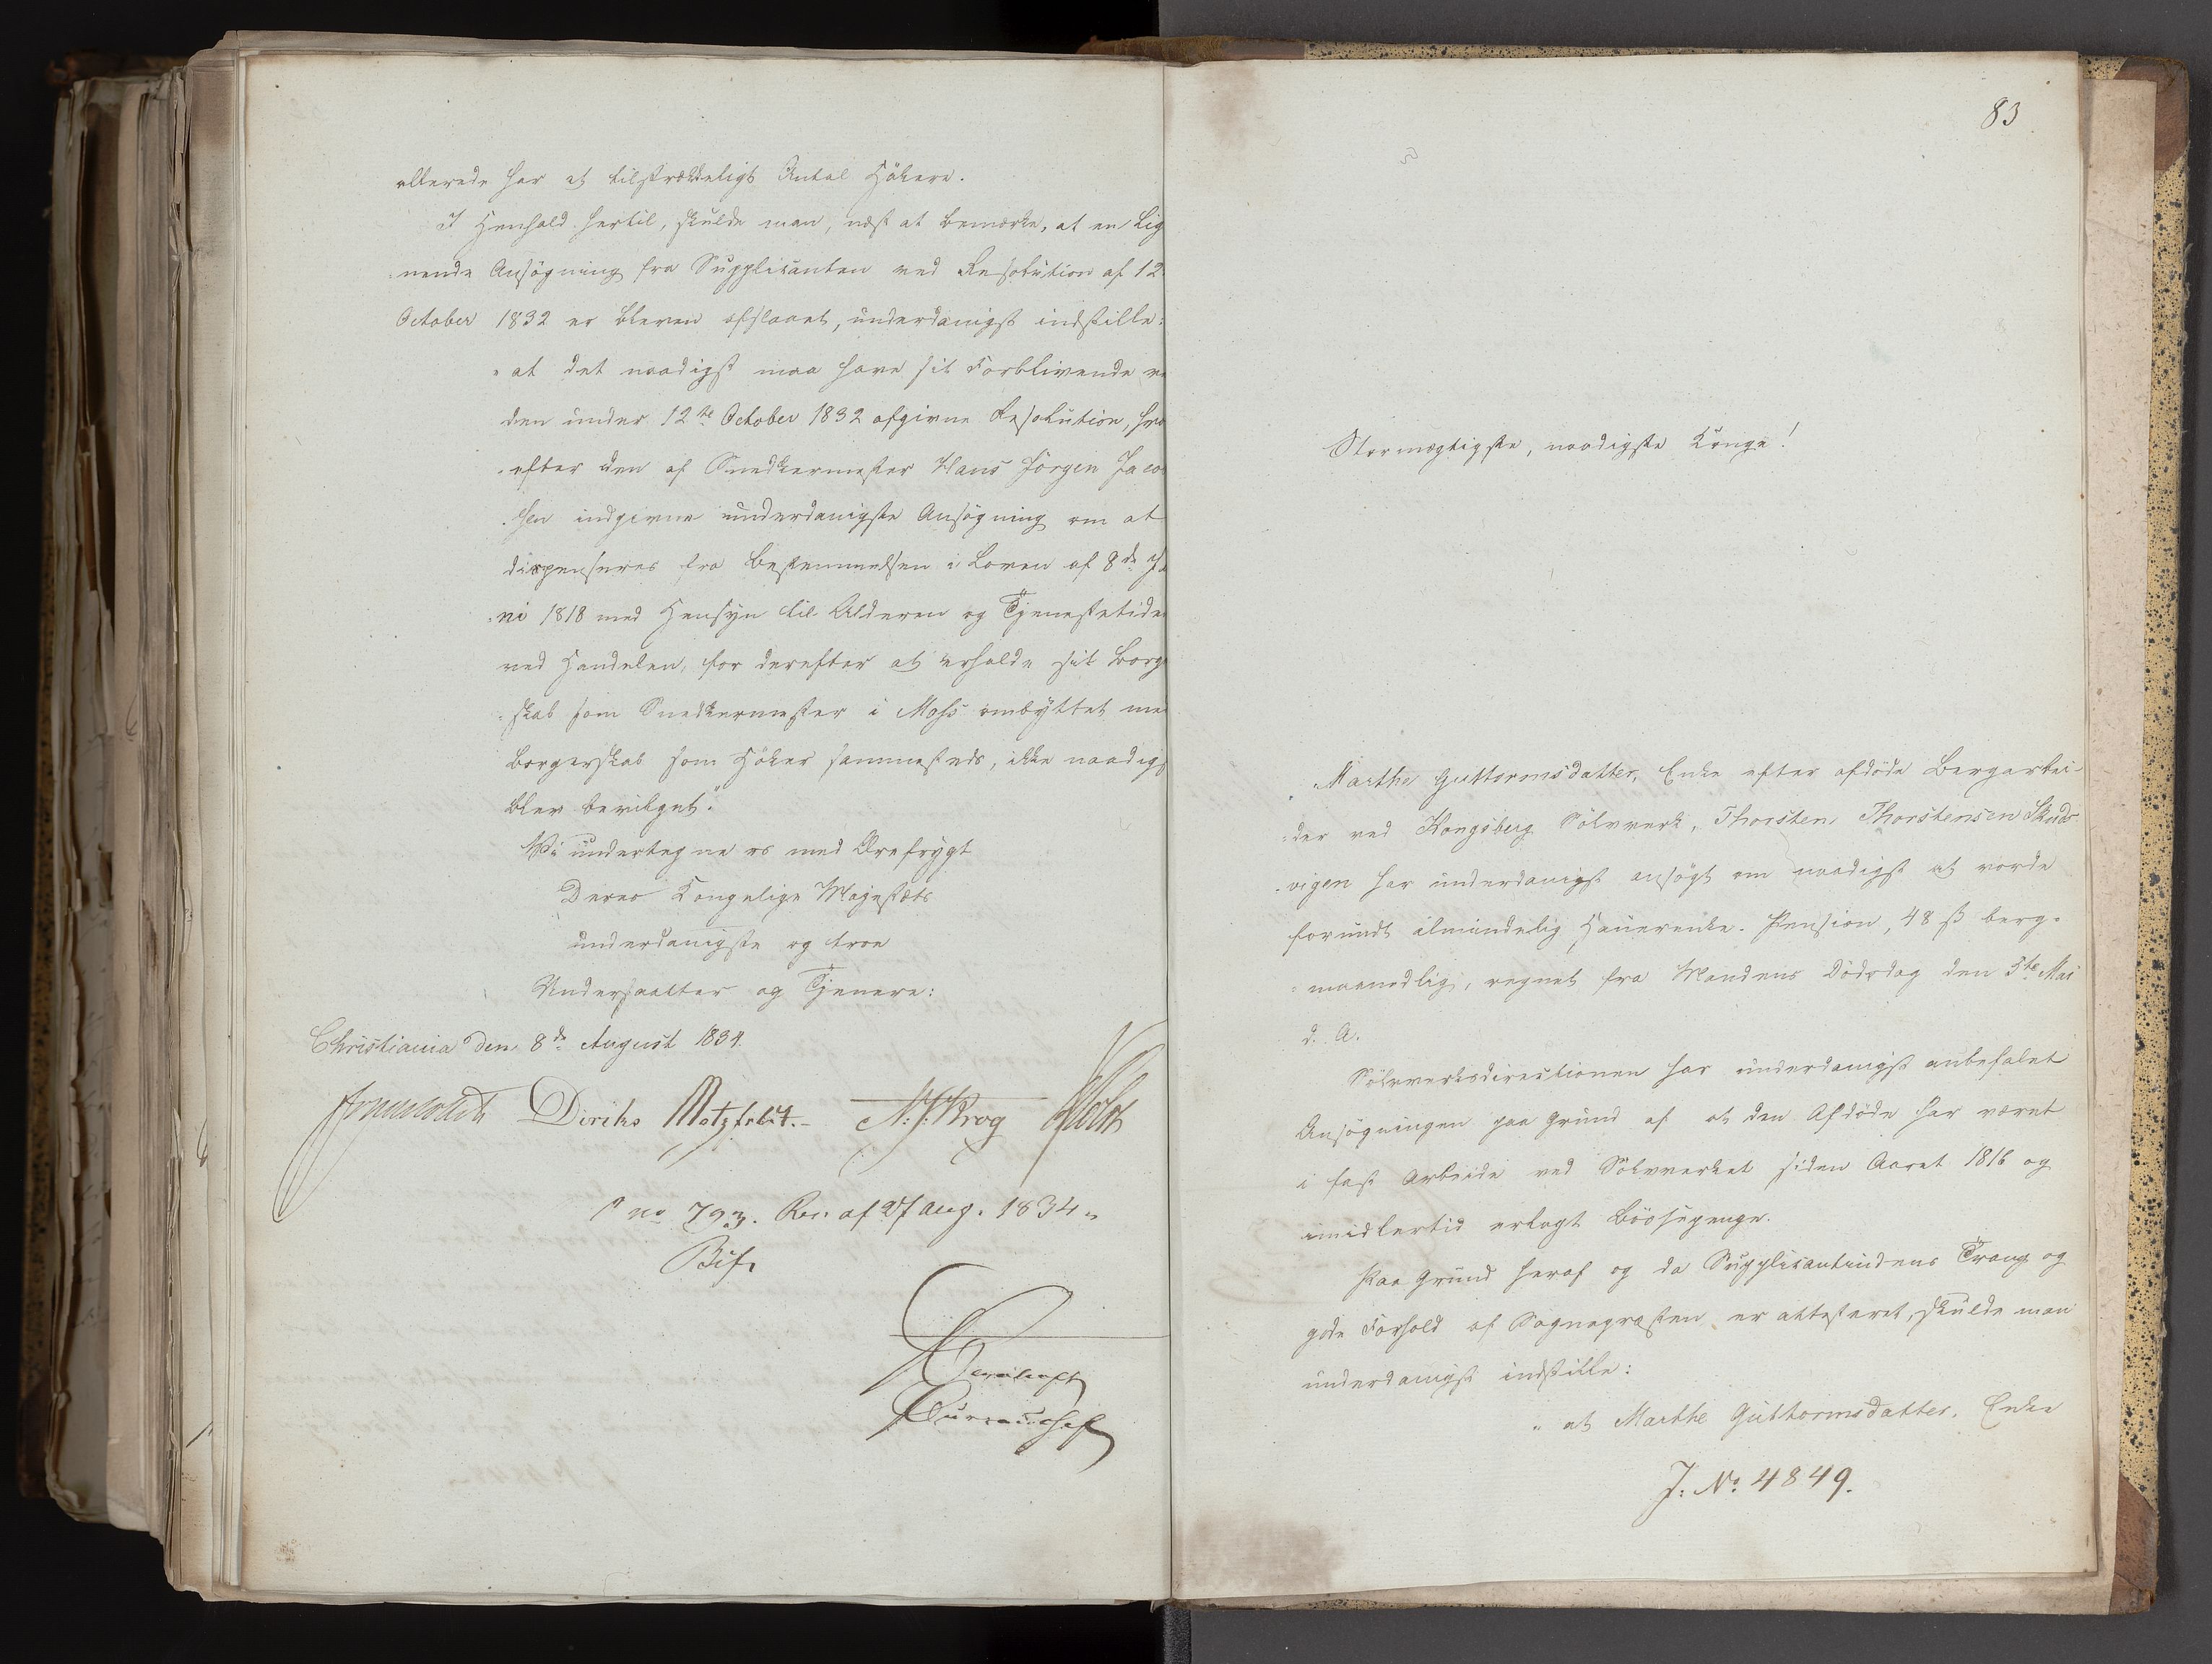 allerede har et tilstrækkeligt Antal Hökere.
I Henhold hertil, skulde man, næst at bemærke, at en lig
nende Ansögning fra Supplikanten ved Resolution af 12
October 1832 er bleven afslaaet, underdanigst indstille:
"at det naadigst maa have sit Forblivende ve
den under 12te October 1832 afgivne Resolution, hvo
efter den af Snedkermester Hans Jörgen Jacob
sen indgivne underdanigste Ansögning om at
dispenseres fra Bestemmelsen i Loven af 8de Ju
ni 1818 med Hensyn til Alderen og Tjenestetiden
ved Handelen, for derefter at erholde sit Borger
skab som Snedkermester i Moss ombyttet med
Borgerskab som Höker sammesteds, ikke naadigst
blev bevilget."
Vi undertegne os med Ærefrygt
Deres Kongelige Majestæts
underdanigste og troe
Undersaatter og Tjenere:
Christiania den 8de August 1834.
Diriks Motzfeldt. N: J: Krog Holst
no 793. Res. af 27 Aug. 1834
Bif.
Bureauchef
83
Stormægtigste, naadigste Konge!
Marthe Guttormsdatter, Enke efter afdöde Bergarbei-
der ved Kongsberg Sölvverk, Thorsten Thorstensen Skuds
vigen har underdanigst ansögt om naadigst at vorde
forundt almindelig Hauerenke-Pension, 48 ß berg-
maanedlig, regnet fra Mandens Dödsdag den 5te Mai
d. A.
Sölvverksdirectionen har underdanigst anbefalet
Ansögningen paa Grund af at den Afdöde har været
i fast Arbeide ved Sölvverket siden Aaret 1816 og
imidlertid erlagt Bössepenge.
Paa Grund heraf og da Supplikantindens Trang og
gode Forhold af Sognepræsten er attesteret, skulde man
underdanigst indstille:
"at Marthe Guttormsdatter, Enke
J: No: 4849.